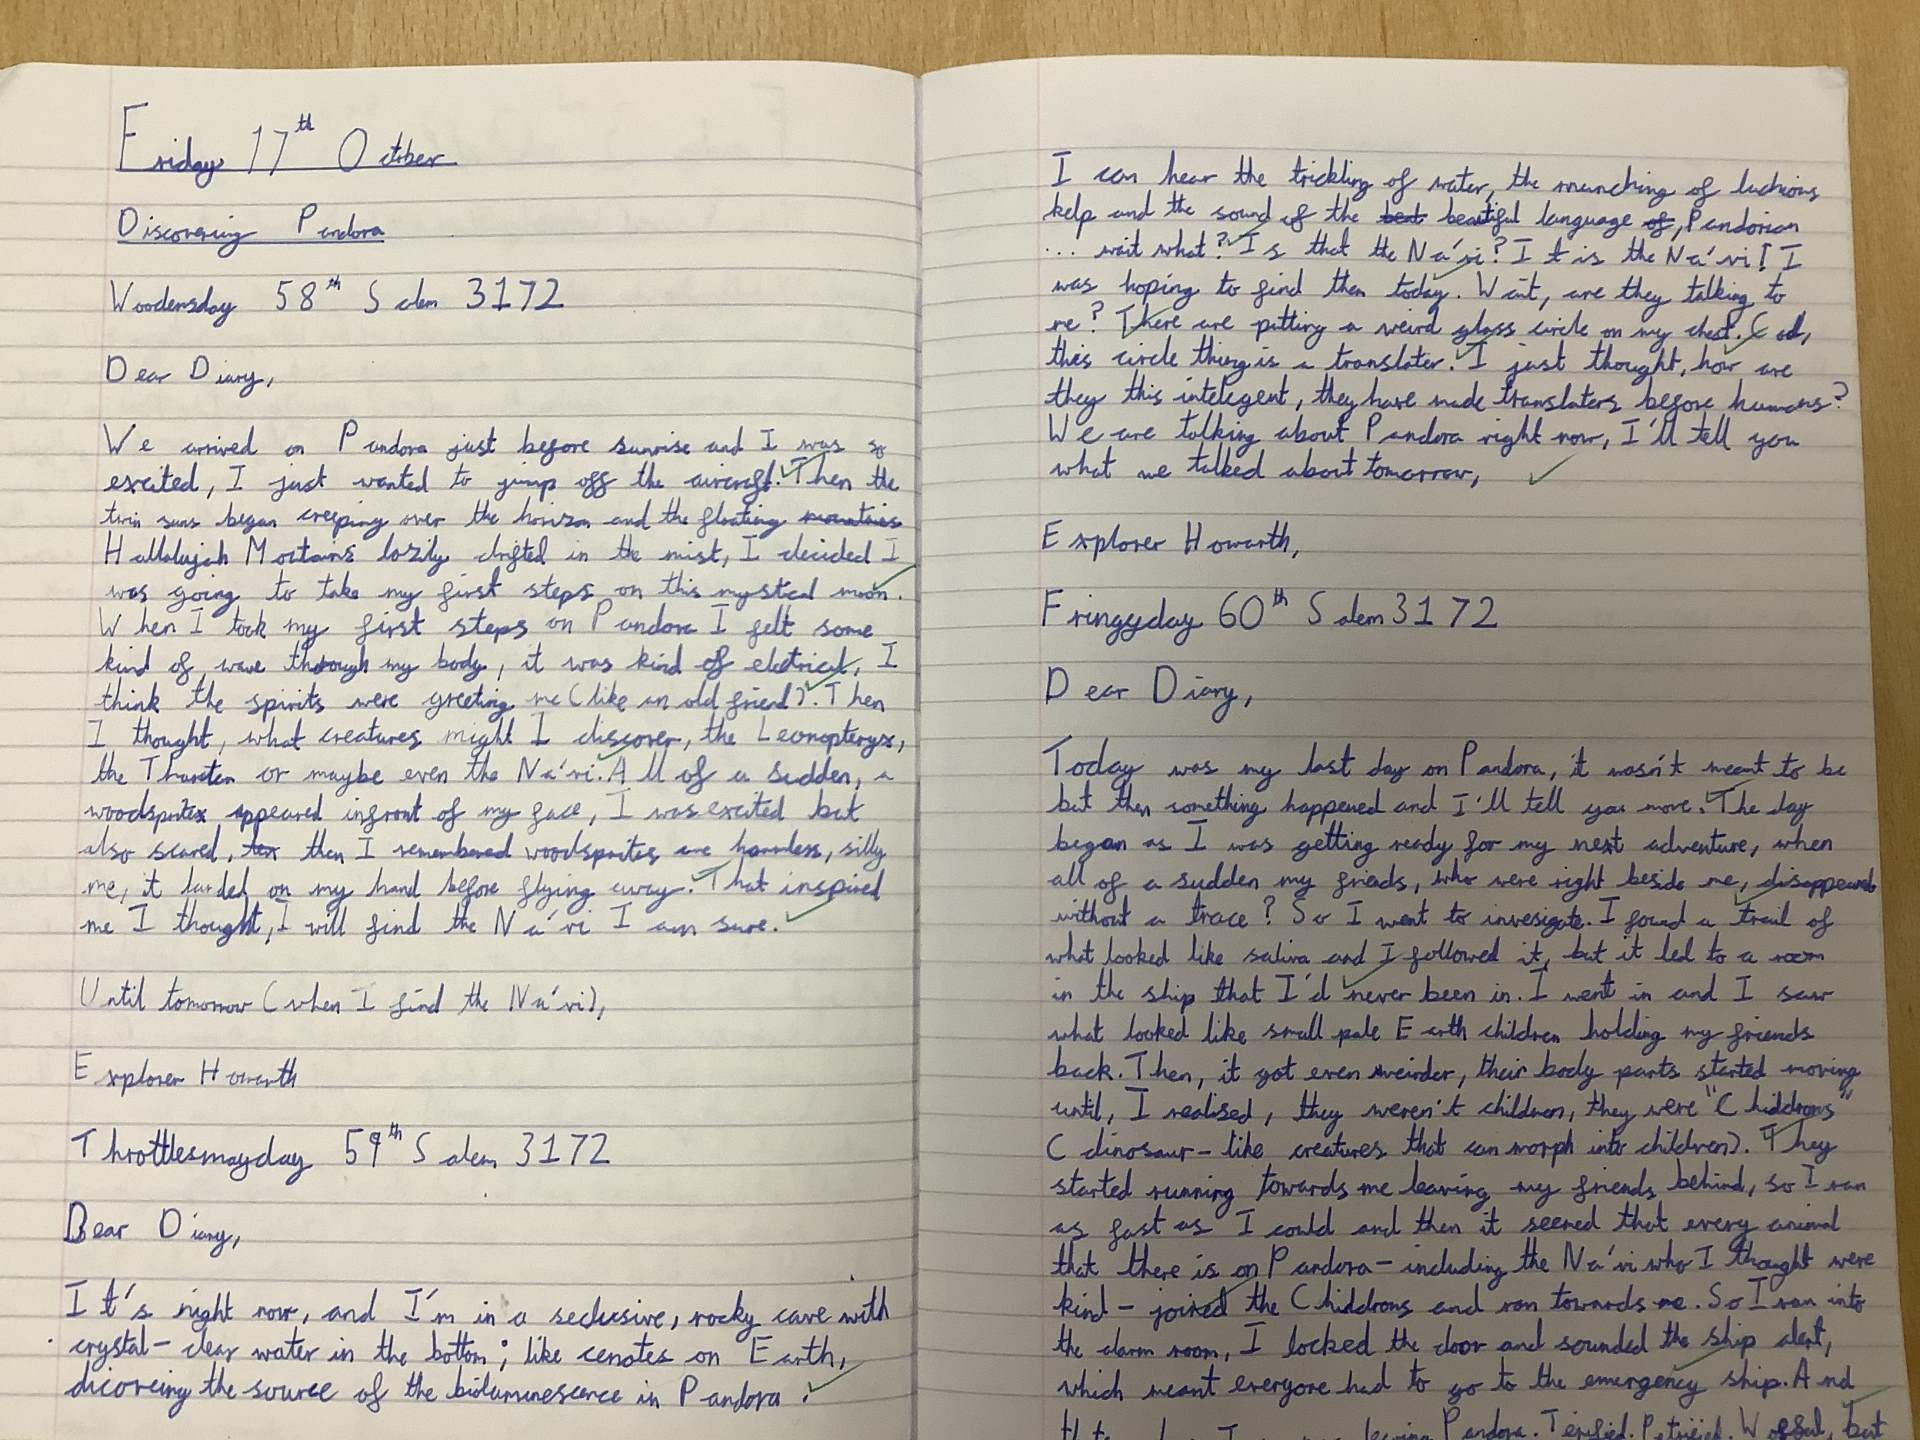 Friday 17th October
Discovering Pandora
Woodensday 58th Salem 3172
Dear Diary,
We arrived on Pandora just before sunrise and I was so
excited, I just wanted to jump off the aircraft. Then the
twin suns began creeping over the horizon and the floating mountains
Hallalujah Moctains lazily drifted in the mist, I decided I
was going to take my first steps on this mystical moon.
When I took my first steps on Pandora I felt some
kind of wave thorough my body, it was kind of eletrical, I
think the spirits were greeting me (like an old friend). Then
I thought, what creatures might I discover, the Leonopteryx,
the Thanten or maybe even the Na'vi. All of a sudden, a
woodsprites appeared infront of my face, I was excited but
also scared, then I remembered woodsprites are harmless, silly
me, it landed on my hand before flying away. That inspired
me I thought, I will find the Na'vi I am sure.
Until tomorrow (when I find the Na'vi),
Explorer Howarth
Throttlesmayday 59th Salem 3172
Dear Diary,
It's night now, and I'm in a seclusive, rocky cave with
crystal-clear water in the bottom; like cenotes on Earth,
dicoreing the source of the bioluminescence in Pandora.
I can hear the trickling of water, the munching of luchious
kelp and the sound of the beat beautiful language of, Pandorian
... wait what? Is that the Na'vi? It is the Na'vi! I
was hoping to find them today. Wait, are they talking to
me? There are pitting a weird glass circle on my chest. Cod,
this circle thing is a translater. I just thought, how are
they this intelegent, they have made translaters before humans?
We are talking about Pandora right now, I'll tell you
what we talked about tomorrow,
Explorer Howarth,
Fringyday 60th Salem 3172
Dear Diary,
Today was my last day on Pandora, it wasn't meant to be
but then something happened and I'll tell you more. The day
began as I was getting ready for my next adventure, when
all of a sudden my friends, who were right beside me, disappeared
without a trace? So I went to invesigate. I found a trail of
what looked like saliva and I followed it, but it led to a room
in the ship that I'd never been in. I went in and I saw
what looked like small pale Earth children holding my friends
back. Then, it got even weirder, their body parts started moving
until, I realised, they weren't children, they were "Chiddrons"
(dinosaur-like creatures that can morph into children). They
started running towards me leaving my friends behind, so I ran
as fast as I could and then it seemed that every animal
that there is on Pandora - including the Na'vi who I thought were
kind - joined the Chiddrons and ran towards me. So I ran into
the alarm room, I locked the door and sounded the ship alert,
which meant everyone had to go to the emergency ship. And
leaving Pandora. Terified. Petrified. Woeful, but